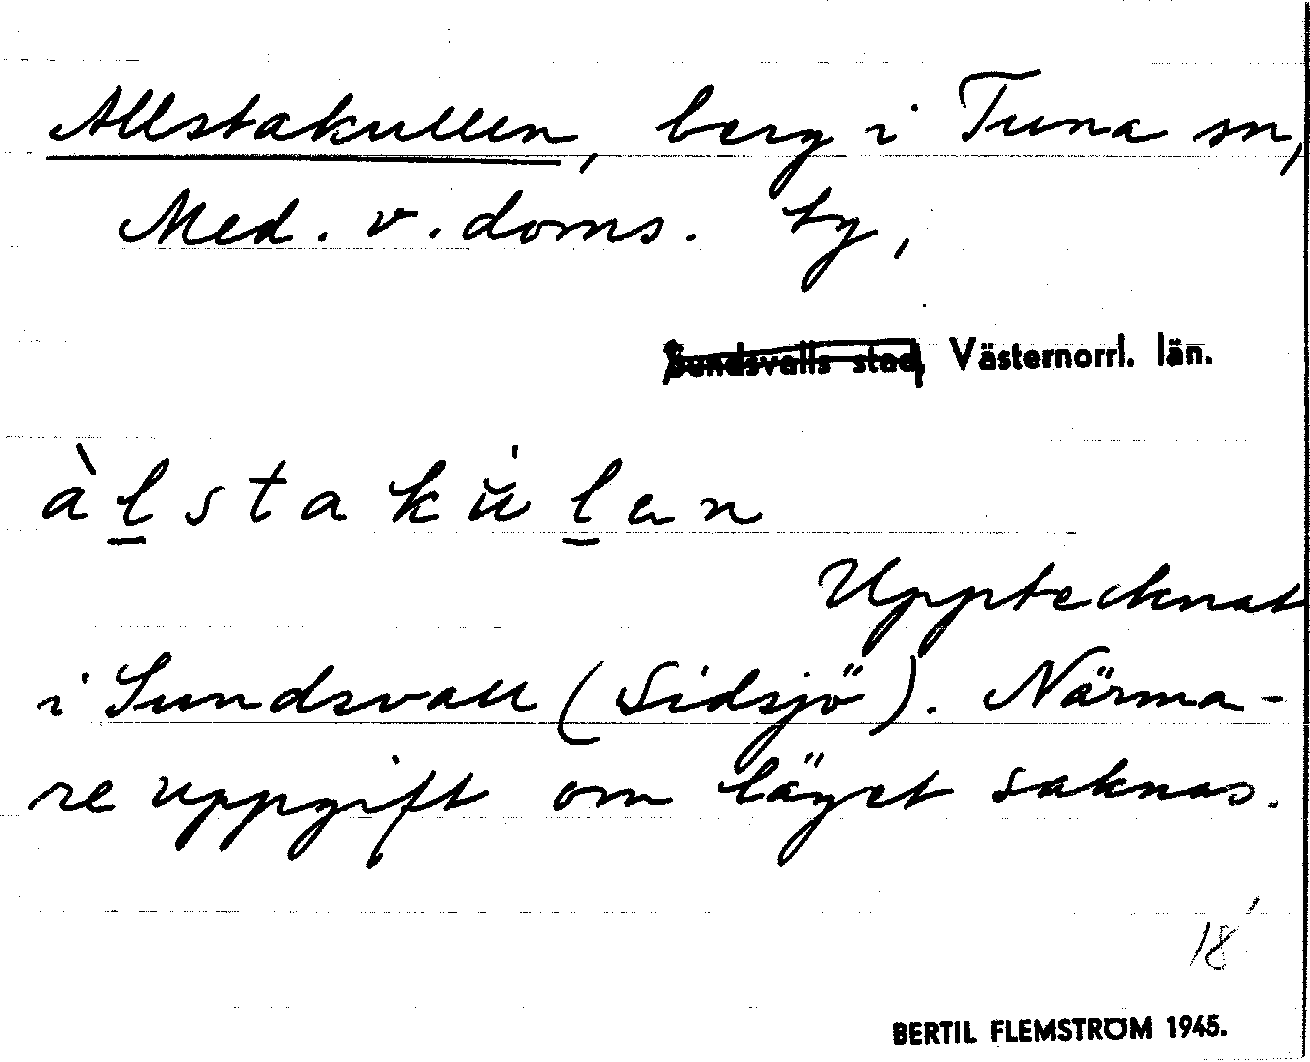 Allstakullen, berg i Tuna sn,
Med. v. doms. ty,
Sundsvalls stad, Västernorrl. län.
àl̲stakùl̲en
Upptecknat
i Sundsvall (Sidsjö). Närma-
re uppgift om läget saknas.
18'
BERTIL FLEMSTRÖM 1945.